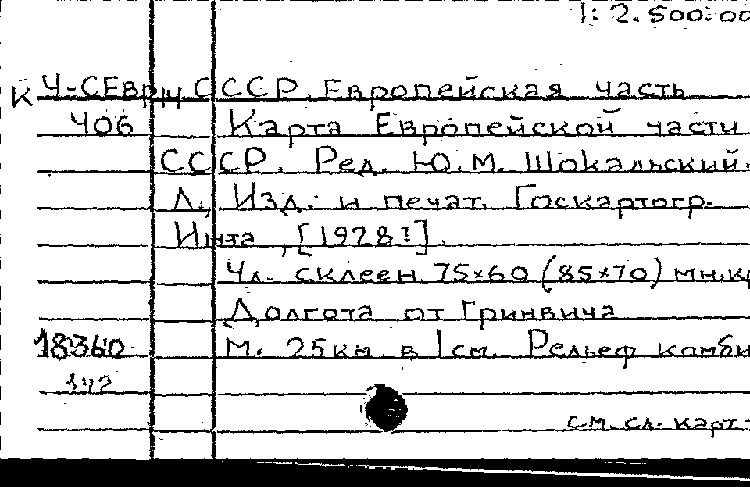 1: 2.500.00
К Ч-СЕвр СССР. Европейская часть
406 Карта Европейской части
СССР. Ред. Ю.М. Шокальский.
Л., Изд. и печат. Госкартогр.
Ин-та, [1928?].
4л. склеен 75×60 (85×70) мн.кр
Долгота от Гринвича
18360 М. 25км в 1см. Рельеф комби
см. сл. карт.